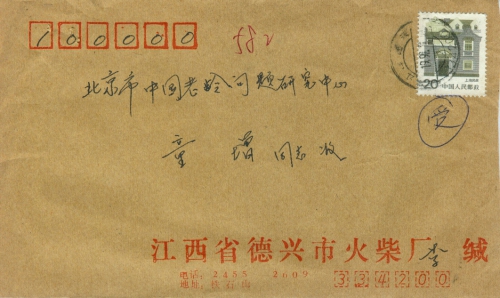 100000
582
20 中国人民邮政
爱
北京市中国老龄问题研究中心
童增 同志收
江西省德兴市火柴厂 李 缄
电话:2455 2609
地址:铁石山
334200